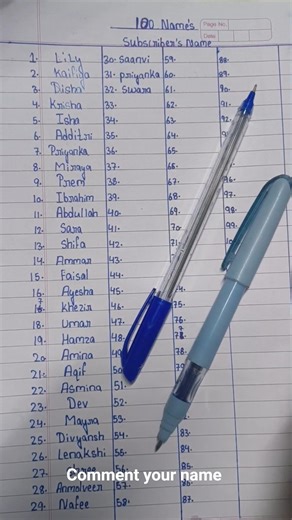 100 Name's
Page No.
Date
Subscriber's Name
1. Lily 30- Saanvi 59. 88.
2. Kaifiya 31- Priyanka 60. 89.
3. Disha 32- Swara 61. 90.
4. Krisha 33. 62. 91.
5. Isha 34. 63. 92.
6. Additri 35. 64.
7. Priyanka 36. 65.
8. Miraya 37. 66.
9. Prem 38. 67.
10. Ibrahim 39. 68. 97.
11. Abdullah 40. 69. 98.
12. Sara 41. 70. 99.
13. Shifa 42. 71.
14. Ammar 43.
15. Faisal 44.
16. Ayesha 45.
17. Khezir 46. 75.
18. Umar 47. 76.
19. Hamza 48.
20. Amina 49.
21. Aqif 50.
22. Asmina 51.
23. Dev 52.
24. Mayra 53.
25. Divyansh 54. 83.
26. Lenakshi 55. 84.
Comment your name
28. Anmolveer 57. 86.
29. Nafee 58. 87.